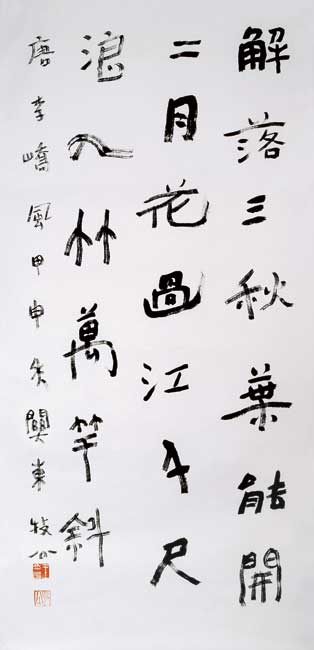 解落三秋葉能開
二月花過江千尺
浪入竹萬竿斜
唐李嶠風甲申冬關東牧公